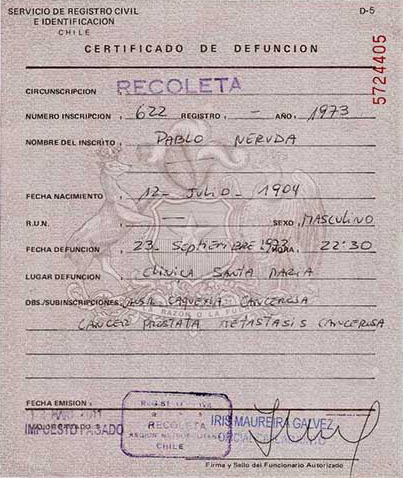 SERVICIO DE REGISTRO CIVIL
E IDENTIFICACION
CHILE
D-5
CERTIFICADO DE DEFUNCION
5724405
CIRCUNSCRIPCION , RECOLETA
NUMERO INSCRIPCION , 622 REGISTRO , - AÑO, 1973
NOMBRE DEL INSCRITO , PABLO NERUDA
FECHA NACIMIENTO , 12- JULIO - 1904
R.U.N. , — SEXO , MASCULINO
FECHA DEFUNCION , 23- Septiembre 1973 HORA, 22:30
LUGAR DEFUNCION , Clinica SANTA MARIA
OBS./SUBINSCRIPCIONES: CAUSA: CAQUEXIA CANCEROSA
LA RAZON O LA
CANCER PROSTATA METASTASIS CANCEROSA
FECHA EMISION :
IMPUESTO PAGADO
RECOLETA
REGION METROPOLITANA
CHILE
IRIS MAUREIRA GALVEZ
Firma y Sello del Funcionario Autorizado